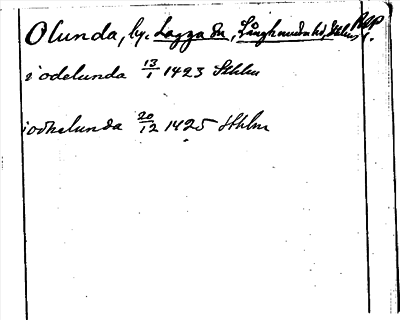 Olunda, by. Lagga sn, Långhundra hd, Sthlms l.
RAP
i odelunda 13/1 1423 Sthlm
i odhelunda 20/12 1425 Sthlm